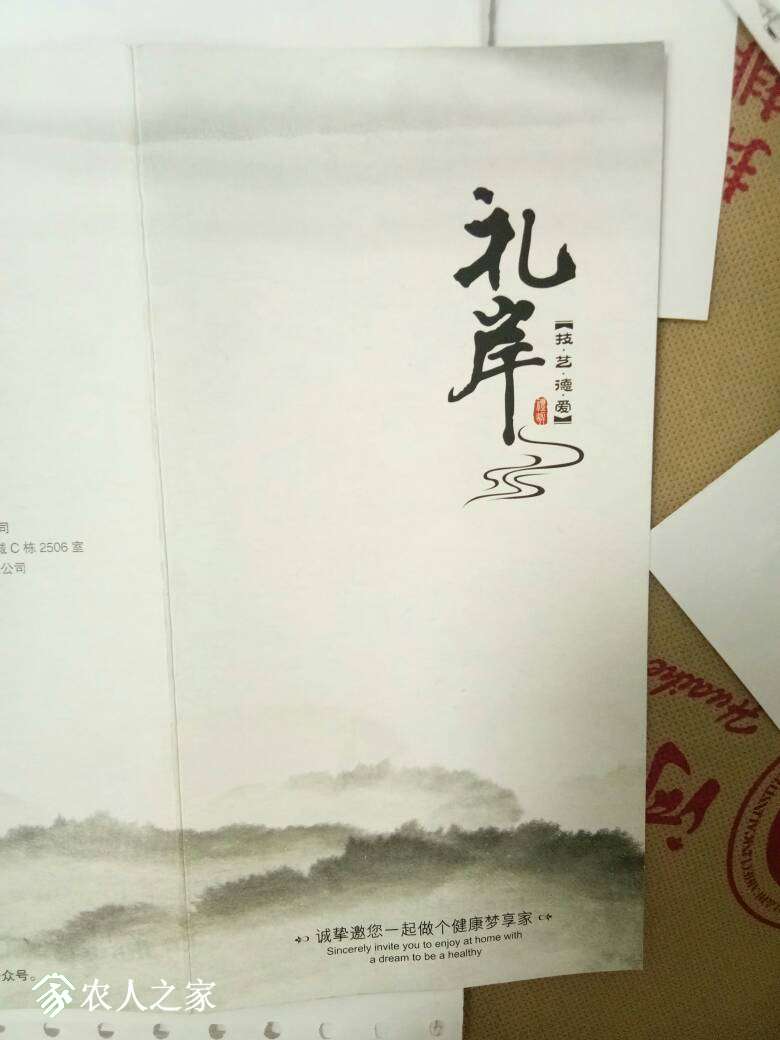 礼岸
【技·艺·德·爱】
司
C 栋 2506 室
公司
诚挚邀您一起做个健康梦享家
Sincerely invite you to enjoy at home with
a dream to be a healthy
众号。
农人之家
Huaihe